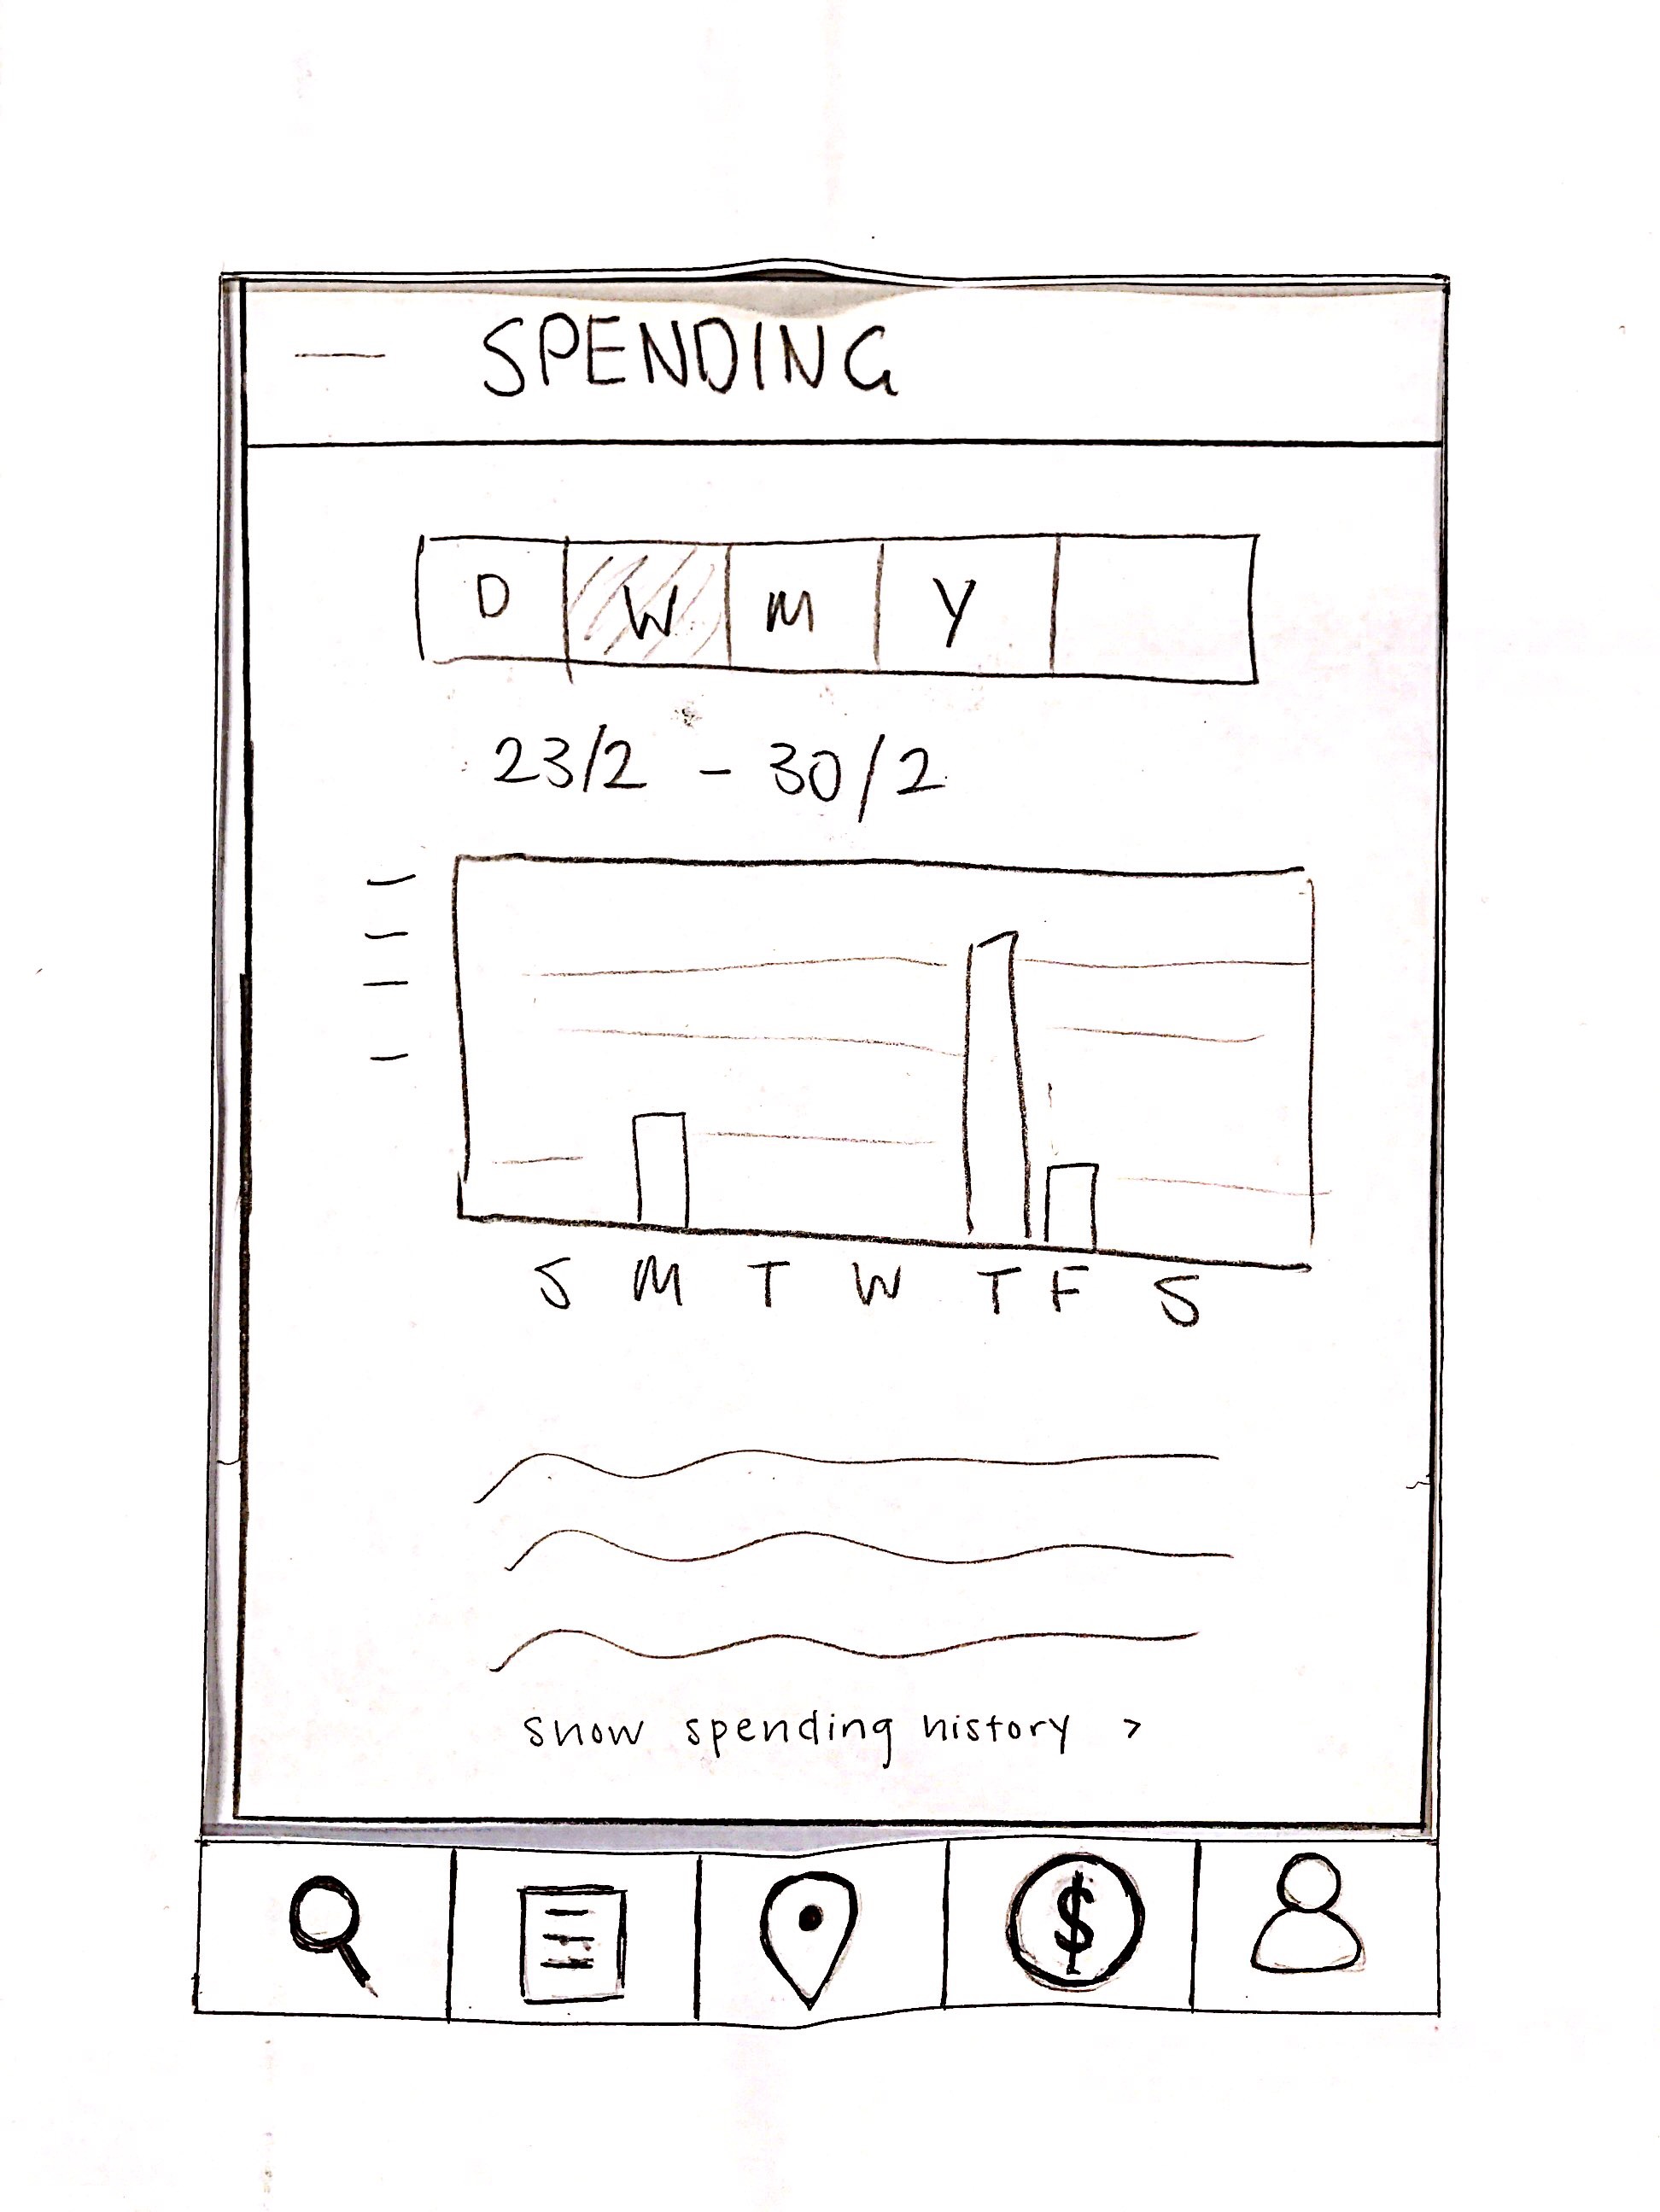 SPENDING
D W M Y
23/2 - 30/2
S M T W T F S
show spending history >
$